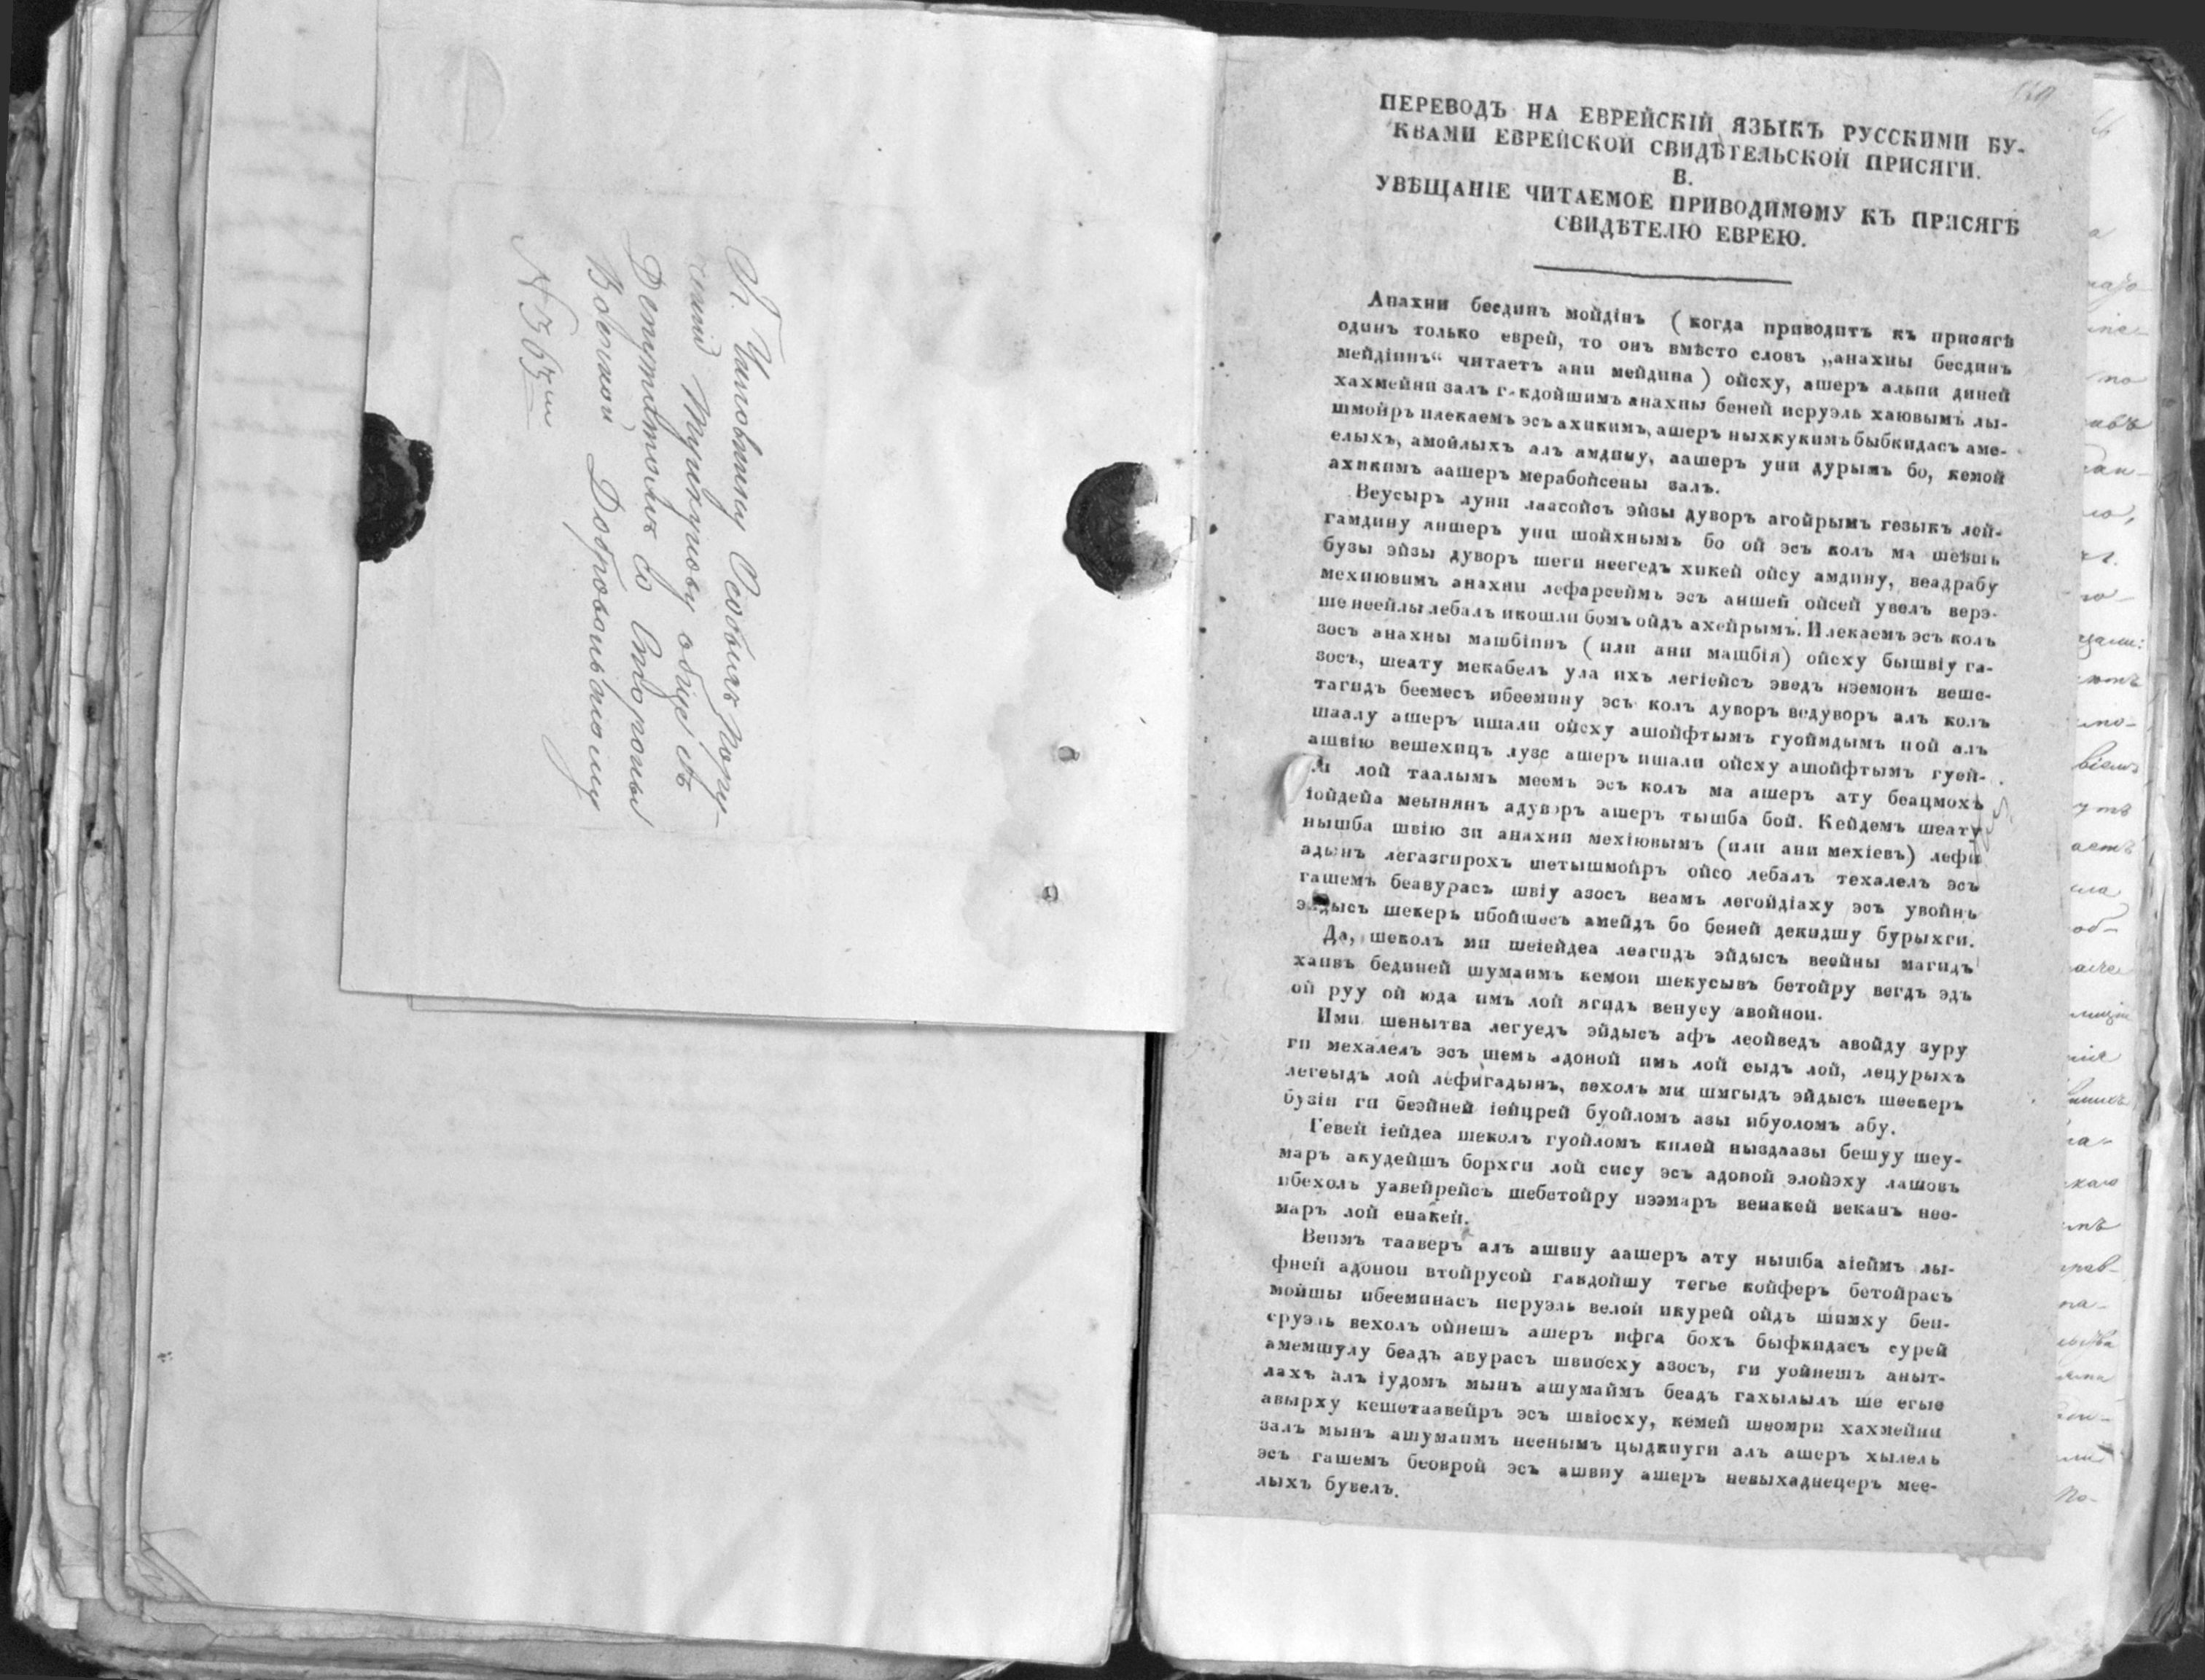 Г. Чиновнику Особыхъ Пору-
ченій Турчунову обще съ
Депутатомъ со Стороны
Военной Добровольскому
N 363
ПЕРЕВОДЪ НА ЕВРЕЙСКІЙ ЯЗЫКЪ РУССКИМИ БУ-
КВАМИ ЕВРЕЙСКОЙ СВИДѢТЕЛЬСКОЙ ПРИСЯГИ.
В.
УВѢЩАНІЕ ЧИТАЕМОЕ ПРИВОДИМОМУ КЪ ПРИСЯГѢ
СВИДѢТЕЛЮ ЕВРЕЮ.
Анахни бесдинъ мойдінъ (когда приводитъ къ присягѣ
одинъ только еврей, то онъ вмѣсто словъ „анахны бесдинъ
мейдіинъ“ читаетъ ани мейдина) ойсху, ашеръ альпи диней
хахмейни залъ гакдойшимъ анахны беней исруэль хаювымъ лы-
шмойръ илекаемъ эсъ ахикимъ, ашеръ ныхкукимъ быбкидасъ аме-
елыхъ, амойлыхъ алъ амдину, аашеръ уни дурымъ бо, кемой
ахикимъ аашеръ мерабойсены залъ.
Веусыръ луни лаасойсъ эйзы дуворъ агойрымъ гезыкъ лей-
гамдину аишеръ уни шойхнымъ бо ой эсъ колъ ма шеѣшъ
бузы эйзы дуворъ шеги неегедъ хикей ойсу амдину, веадрабу
мехиювимъ анахни лефарсеймъ эсъ аншей ойсей увелъ верэ-
ше неейлы лебалъ икошли бомъ ойдъ ахейрымъ. Илекаемъ эсъ колъ
зосъ анахны машбіинъ (или ани машбія) ойсху бышвіу га-
зосъ, шеату мекабелъ ула ихъ легіейсъ эведъ нэемонъ веше-
тагидъ беемесъ ибеемину эсъ колъ дуворъ ведуворъ алъ колъ
шаалу ашеръ ишали ойсху ашойфтымъ гуоймдымъ пой алъ
ашвію вешехицъ лузе ашеръ ишали ойсху ашойфтымъ гуей-
ли лой таалымъ меемъ эсъ колъ ма ашеръ ату беацмохъ
іойдейа меынянъ адуворъ ашеръ тышба бой. Кейдемъ шеату
нышба швію зи анахни мехіювымъ (или ани мехіевъ) лефи
адынъ легазгирохъ шетышмойръ ойсо лебалъ техалелъ эсъ
гашемъ беавурасъ швіу азосъ веамъ легойдіаху эсъ увойнъ
эйдысъ шекеръ ибойшесъ амейдъ бо беней декидшу бурыхги.
Да, шеколъ ми шеіейдеа леагидъ эйдысъ веойны магидъ
хаивъ бединей шумаимъ кемои шекусывъ бетойру вегдъ эдъ
ой руу ой юда имъ лой ягидъ венусу авойнои.
Ими шенытва легуедъ эйдысъ афъ леойведъ авойду зуру
ги мехалелъ эсъ шемъ адоной имъ лой еыдъ лой, лецурыхъ
легеыдъ лой лефигадынъ, вехолъ ми шмгыдъ эйдысъ шеекеръ
бузіи ги беэйней іейцрей буойломъ азы ибуоломъ абу.
Гевей іейдеа шеколъ гуойломъ килей ныздаазы бешуу шеу-
маръ акудейшъ борхги лой сису эсъ адоной элойэху лашовъ
ибехолъ уавейрейсъ шебетойру нээмаръ венакей веканъ нее-
маръ лой енакей.
Веимъ тааверъ алъ ашвиу аашеръ ату нышба аіеймъ лы-
фней адонои втойрусой гакдойшу тегье койферъ бетойрасъ
мойшы ибееминасъ исруэль велой икурей ойдъ шимху беи-
сруэль вехолъ ойнешъ ашеръ ифга бохъ быфкидасъ сурей
амемшулу беадъ авурасъ швиосху азосъ, ги уойнешъ аныт-
лахъ алъ іудомъ мынъ ашумаймъ беадъ гахылылъ ше егые
авырху кешетаавейръ эсъ швіосху, кемей шеомри хахмейни
залъ мынъ ашумаимъ неенымъ цыдкиуги алъ ашеръ хылелъ
эсъ гашемъ беоврой эсъ ашвиу ашеръ невыхаднецеръ мее-
лыхъ бувелъ.